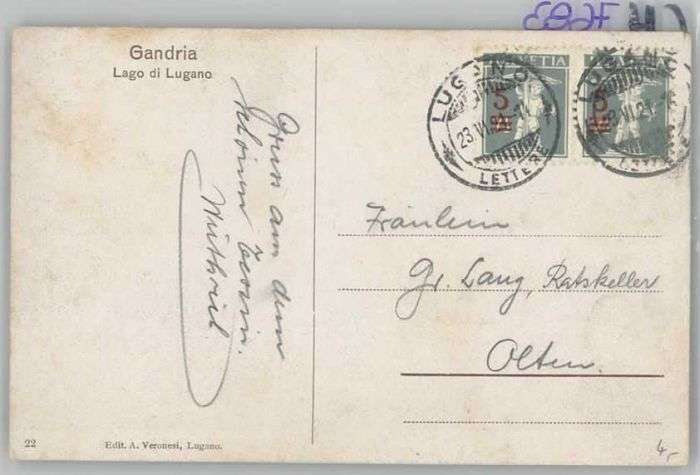 Gandria
Lago di Lugano
Gruss aus dem
schönen Tessin.
HELVETIA
5
5
LUGANO
23.VI.21
LETTERE
LUGANO
Fräulein
Gr. Lang, Ratskeller
Olten.
22
Edit. A. Veronesi, Lugano.
4,-